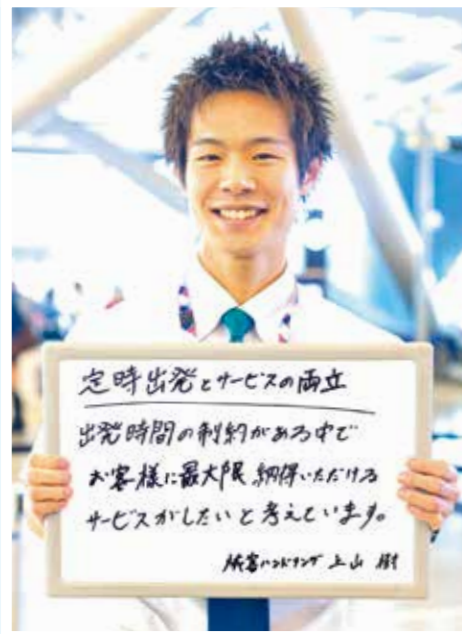 定時出発とサービスの両立
出発時間の制約がある中で
お客様に最大限納得いただける
サービスがしたいと考えています。
旅客ハンドリング 上山 樹